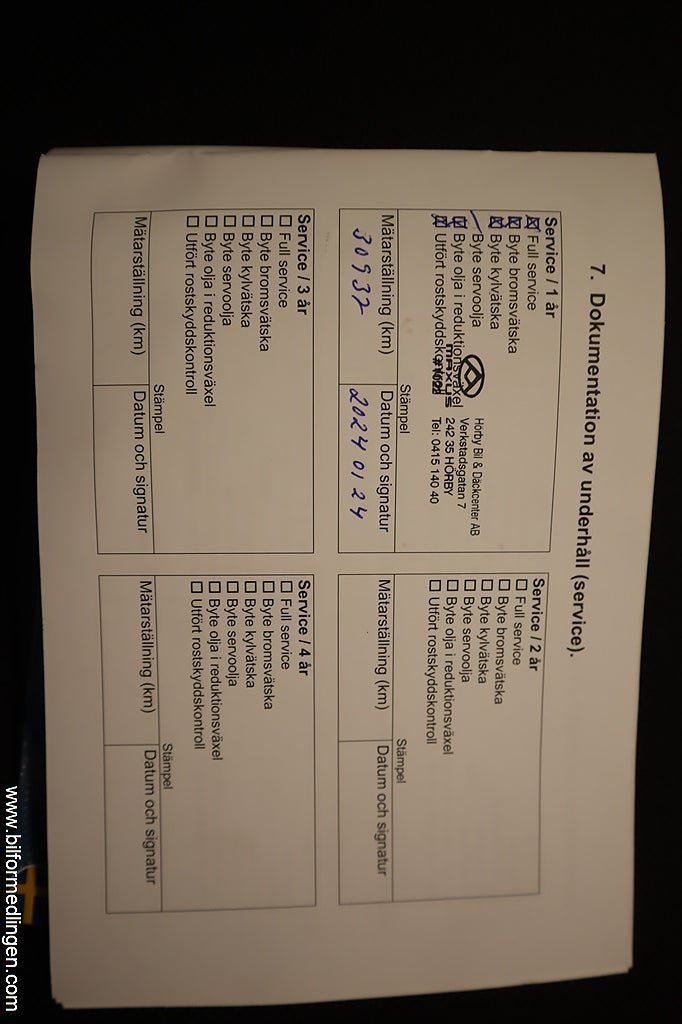 7. Dokumentation av underhåll (service).
Service / 1 år
Full service
Byte bromsvätska
Byte kylvätska
Byte servoolja
Byte olja i reduktionsväxel
Utfört rostskyddskontroll
MAXUS
Hörby Bil & Däckcenter AB
Verkstadsgatan 7
242 35 HÖRBY
Tel: 0415 140 40
Stämpel
Mätarställning (km)
Datum och signatur
30937
20240124
Service / 2 år
Full service
Byte bromsvätska
Byte kylvätska
Byte servoolja
Byte olja i reduktionsväxel
Utfört rostskyddskontroll
Stämpel
Mätarställning (km)
Datum och signatur
Service / 3 år
Full service
Byte bromsvätska
Byte kylvätska
Byte servoolja
Byte olja i reduktionsväxel
Utfört rostskyddskontroll
Stämpel
Mätarställning (km)
Datum och signatur
Service / 4 år
Full service
Byte bromsvätska
Byte kylvätska
Byte servoolja
Byte olja i reduktionsväxel
Utfört rostskyddskontroll
Stämpel
Mätarställning (km)
Datum och signatur
www.bilformedlingen.com